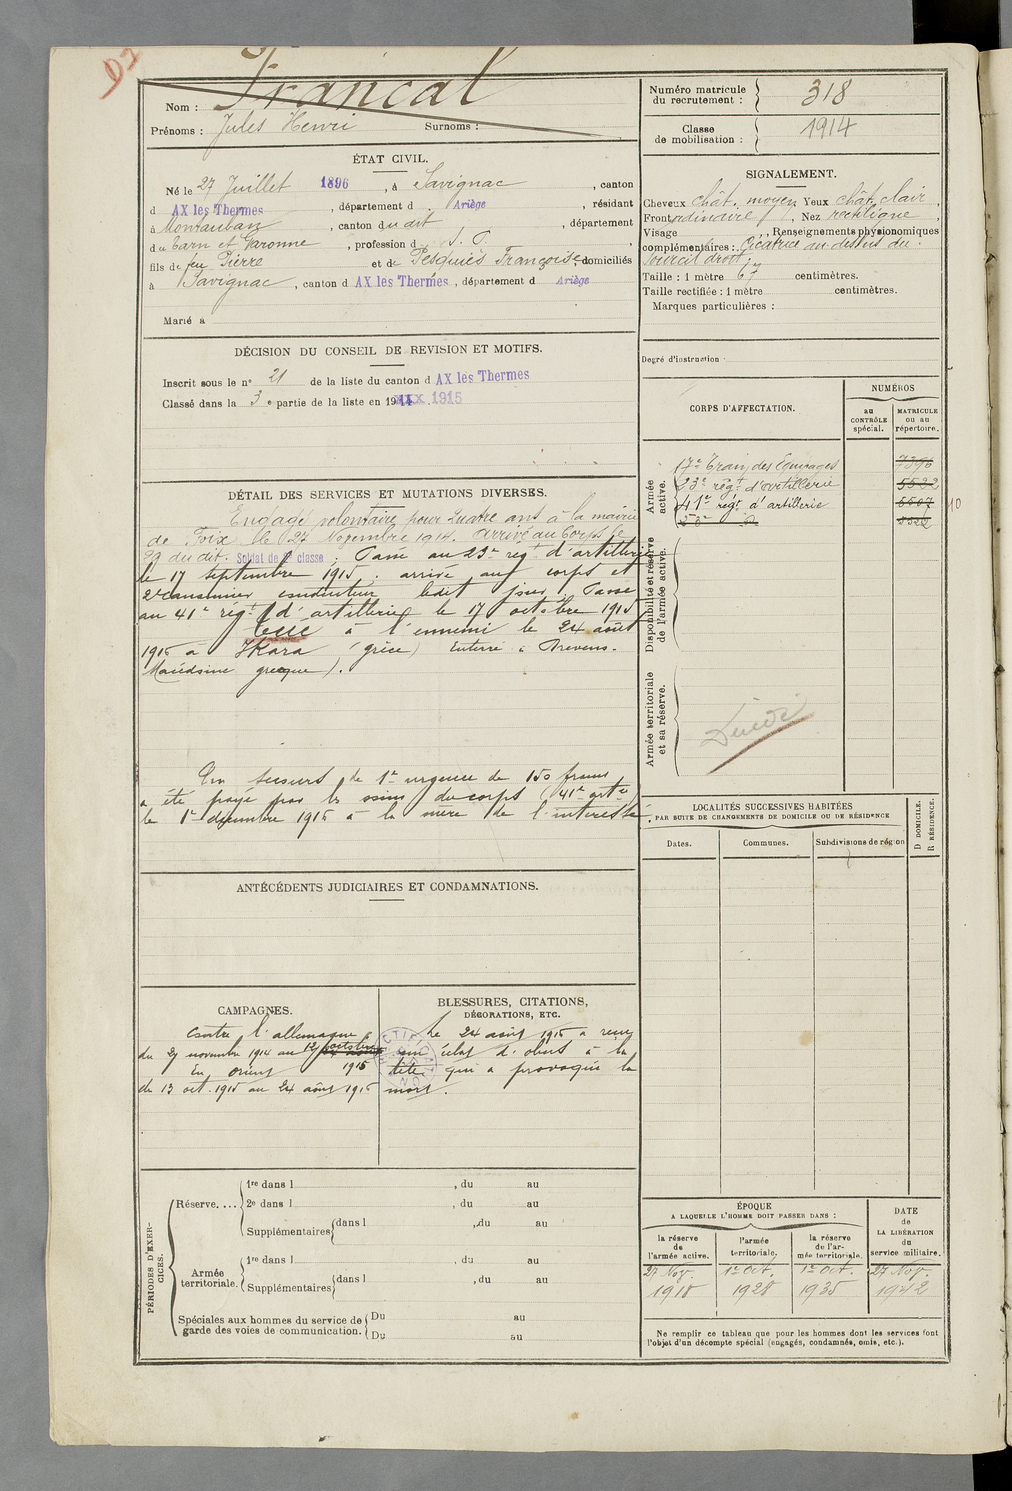 D2
Nom : Francal
Prénoms : Jules Henri Surnoms :
ÉTAT CIVIL.
Né le 27 Juillet 1896, à Savignac, canton
d AX les Thermes, département d Ariège, résidant
à Montauban, canton du dit, département
du Tarn et Garonne, profession d S. P.
fils de feu Pierre et de Pesquiès Françoise domiciliés
à Savignac, canton d AX les Thermes, département d Ariège
Marié à
DÉCISION DU CONSEIL DE REVISION ET MOTIFS.
Inscrit sous le n° 21 de la liste du canton d AX les Thermes
Classé dans la 3e partie de la liste en 1914 1915
DÉTAIL DES SERVICES ET MUTATIONS DIVERSES.
Engagé volontaire pour quatre ans à la mairie
de Foix le 27 Novembre 1914. Arrivé au Corps le
29 du dit. Soldat de 2e classe ; Passé au 23e régt d'artillerie
le 17 septembre 1915 ; arrivé au corps et
2e canonnier conducteur ledit jour. Passé
au 41e régt d'artillerie le 17 octobre 1915
Tué à l'ennemi le 24 août
1916 à (grèce) Enterré à
Macédoine grecque).
Un secours de 1re urgence de 150 francs
a été payé par les soins du corps (41e artie)
le 1er décembre 1916 à la mère de l'intéressé
ANTÉCÉDENTS JUDICIAIRES ET CONDAMNATIONS.
CAMPAGNES.
Contre l'allemagne
du 27 novembre 1914 au 12 octobre
1915
En orient
du 13 oct. 1915 au 24 août 1916
BLESSURES, CITATIONS,
DÉCORATIONS, ETC.
Le 24 août 1916 a reçu
un éclat d'obus à la
tête qui a provoqué la
mort.
PÉRIODES D'EXERCICES.
Réserve.... 1re dans l , du au
2e dans l , du au
Supplémentaires dans l ,du au
Armée territoriale. 1re dans l , du au
Supplémentaires dans l , du au
Spéciales aux hommes du service de Du au
garde des voies de communication. Du au
Numéro matricule
du recrutement : 318
Classe
de mobilisation : 1914
SIGNALEMENT.
Cheveux chât. moyen Yeux chât. clair,
Front ordinaire, Nez rectiligne,
Visage , Renseignements physionomiques
complémentaires : Cicatrice au-dessus du
sourcil droit.
Taille : 1 mètre 67 centimètres.
Taille rectifiée : 1 mètre centimètres.
Marques particulières :
Degré d'instruction
CORPS D'AFFECTATION.
NUMÉROS
au
CONTRÔLE
spécial.
MATRICULE
ou au
répertoire.
Armée
active.
17e Train des Equipages 7396
23e régt d'artillerie
41e régt d'artillerie 10
Disponibilité et réserve
de l'armée active.
Armée territoriale
et sa réserve.
LOCALITÉS SUCCESSIVES HABITÉES
PAR SUITE DE CHANGEMENTS DE DOMICILE OU DE RÉSIDENCE
D DOMICILE.
R RÉSIDENCE.
Dates. Communes. Subdivisions de région
ÉPOQUE
A LAQUELLE L'HOMME DOIT PASSER DANS :
la réserve
de
l'armée active.
l'armée
territoriale.
la réserve
de l'ar-
mée territoriale.
DATE
de
LA LIBÉRATION
du
service militaire.
27 Nov. 1er Oct. 1er Oct. 27 Nov.
1918 1928 1935 1942
Ne remplir ce tableau que pour les hommes dont les services font
l'objet d'un décompte spécial (engagés, condamnés, omis, etc.).